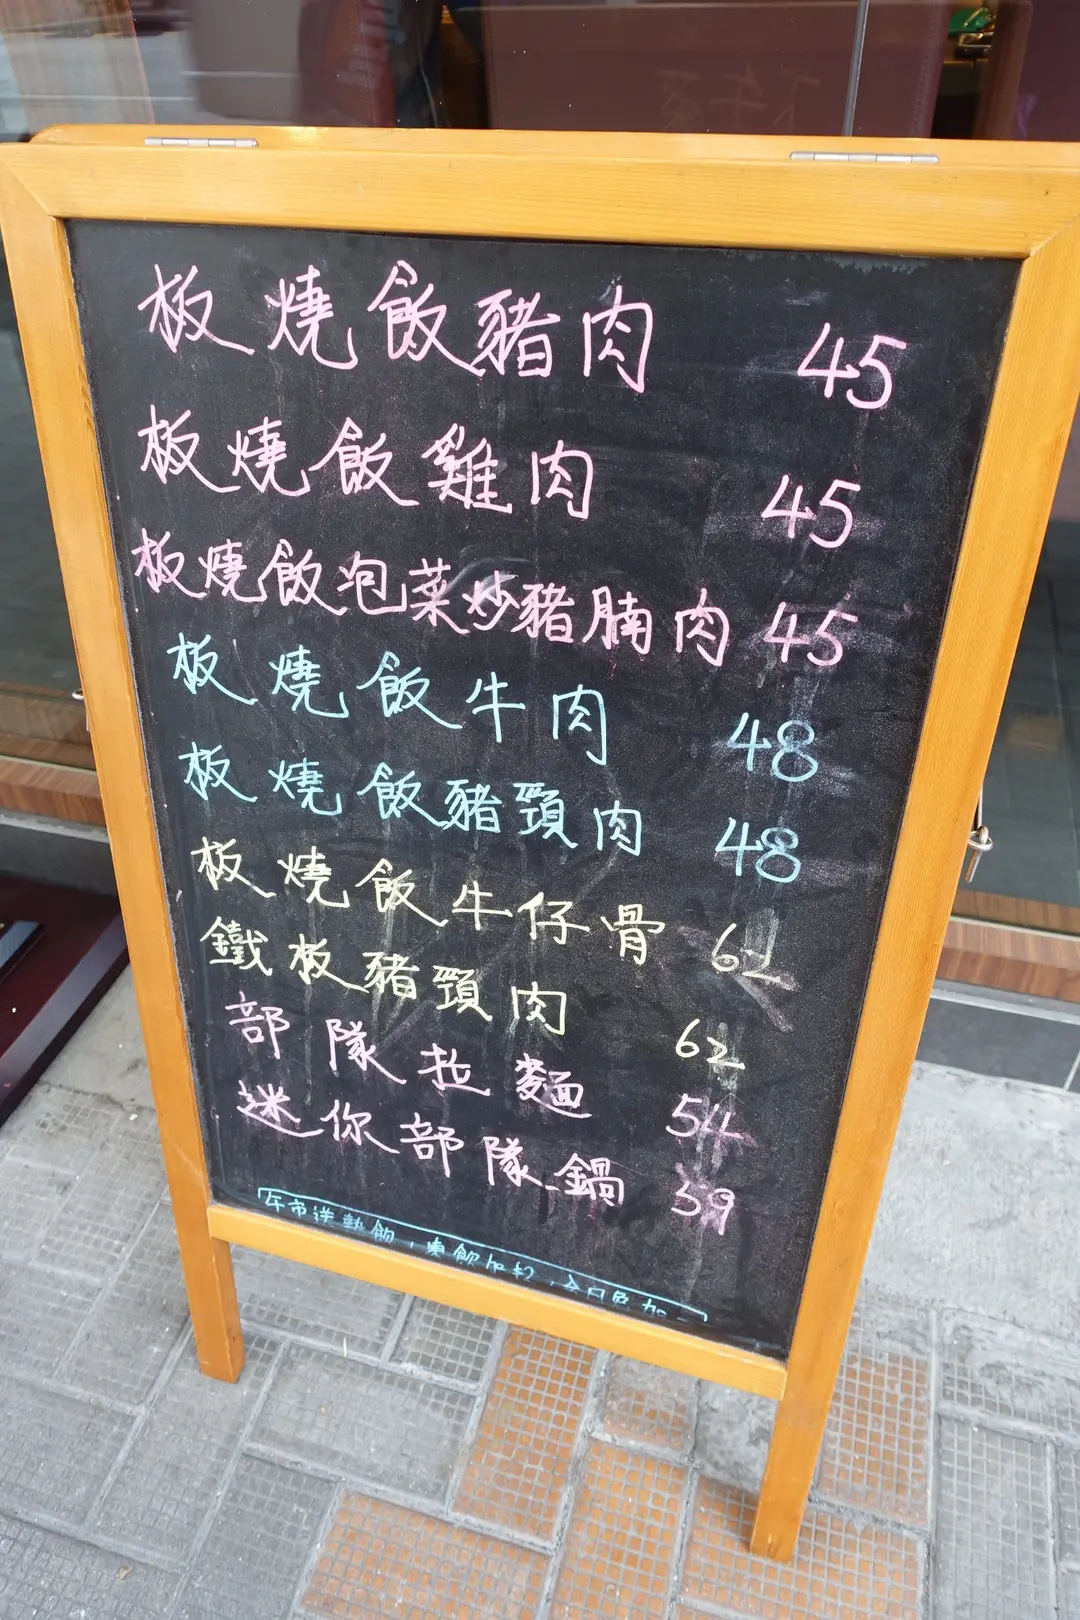 板燒飯豬肉 45
板燒飯雞肉 45
板燒飯泡菜炒豬腩肉 45
板燒飯牛肉 48
板燒飯豬頸肉 48
板燒飯牛仔骨 62
鐵板豬頸肉 62
部隊拉麵 54
迷你部隊鍋 59
午市送熱飲，凍飲加$2，